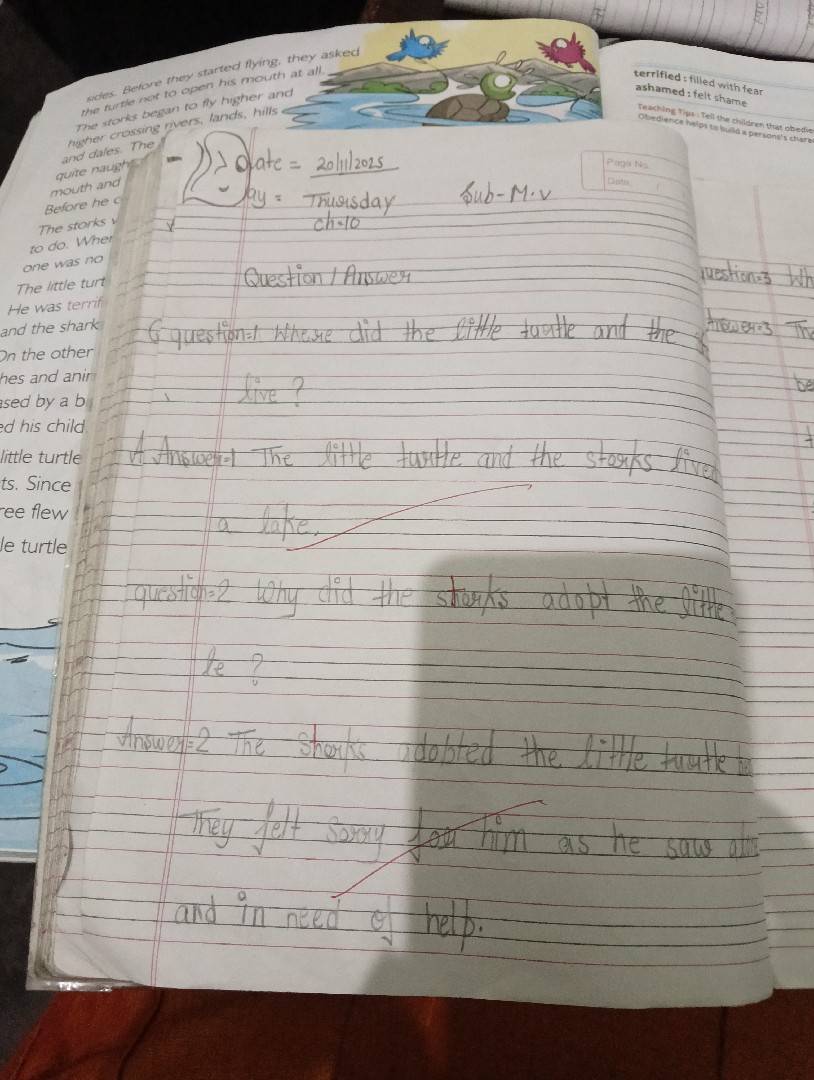 sides. Before they started flying, they asked
the turtle not to open his mouth at all.
The storks began to fly higher and
higher crossing rivers, lands, hills
and dales. The
quite naugh
mouth and
Before he c
The storks w
to do. Wher
one was no
The little turt
He was terrif
and the shark
On the other
hes and anir
ased by a b
ed his child
little turtle
ts. Since
ree flew
le turtle
terrified : filled with fear
ashamed : felt shame
Teaching Tips : Tell the children that obedie
Obedience helps to build a person's chara
Page No.
Date
Date = 20/11/2025
Day = Thursday Sub-M.V
ch=10
Question / Answer
question=1 Where did the little turtle and the
live ?
Answer=1 The little turtle and the storks lived
a lake.
question=2 Why did the storks adopt the little
le ?
Answer=2 The storks adobted the little turtle
They felt sorry for him as he saw
and in need of help.
question=3 Wh
Answer=3 The
be